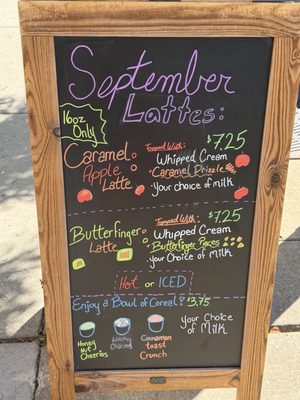 September
Lattes:
16oz
Only!
$7.25
Caramel
Apple
Latte
Topped With:
Whipped Cream
Caramel Drizzle
your choice of milk
$7.25
Butterfinger
Latte
Topped With:
Whipped Cream
Butterfinger Pieces
your Choice of Milk
Hot or ICED
Enjoy a Bowl of Cereal! $3.75
Honey
Nut
Cheerios
Lucky
Charms
Cinnamon
toast
Crunch
your Choice
of Milk